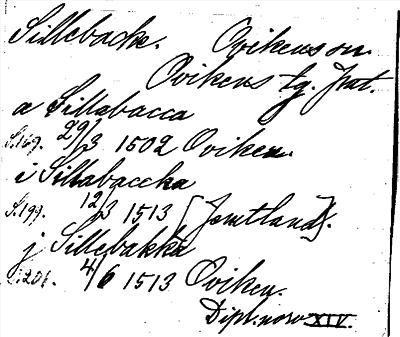 Sillebacke. Ovikens sn.
Ovikens tg. Jmt.
a Sillabacca
S.169. 29/3 1502 Oviken.
i Sillabaccka
S.199. 12/3 1513 [Jemtland].
j Sillebakka
S.201. 4/6 1513 Oviken.
Dipl. norv XIV.